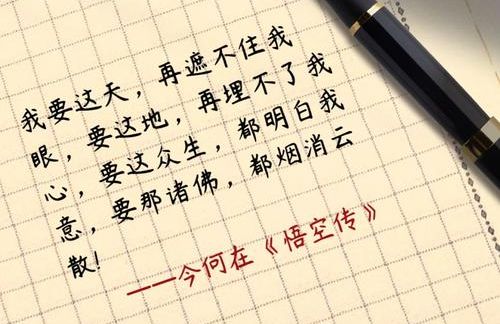 我要这天，再遮不住我
眼，要这地，再埋不了我
心，要这众生，都明白我
意，要那诸佛，都烟消云
散！
——今何在《悟空传》